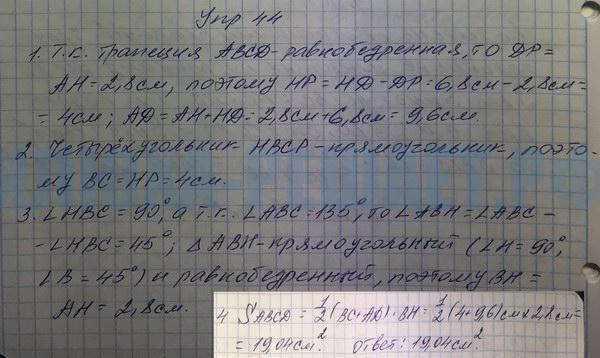 Упр 44
1. Т.к. трапеция ABCD-равнобедренная, то DP=
AH=2,8см, поэтому HP=HD-DP=6,8см-2,8см=
=4см; AD=AH+HD=2,8см+6,8см=9,6см.
2. Четырёхугольник HBCP-прямоугольник, поэто-
му BC=HP=4см.
3. ∠HBC=90°, а т.к. ∠ABC=135°, то ∠ABH=∠ABC-
-∠HBC=45°; △ABH-прямоугольный (∠H=90°,
∠B=45°) и равнобедренный, поэтому BH=
AH=2,8см.
4 SABCD = 1/2 (BC+AD)·BH= 1/2 (4+9,6)см×2,8см=
= 19,04см². ответ: 19,04см²